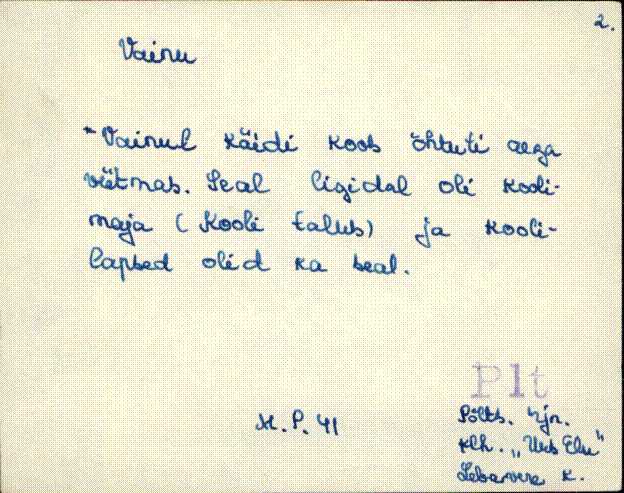 2.
Vainu
"Vainul käidi koos õhtuti aega
viitmas. Seal ligidal oli kooli-
maja (Kooli talus) ja kooli-
lapsed olid ka seal.
Plt
H. P. 41
Põlts. rjn.
klh. „Uus Elu"
Lebavere k.